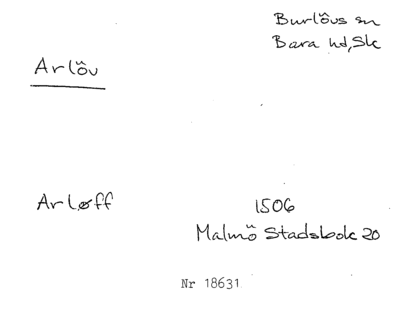 Burlövs sn
Bara hd, Sk
Arlöv
Arløff
1506
Malmö Stadsbok 20
Nr 18631